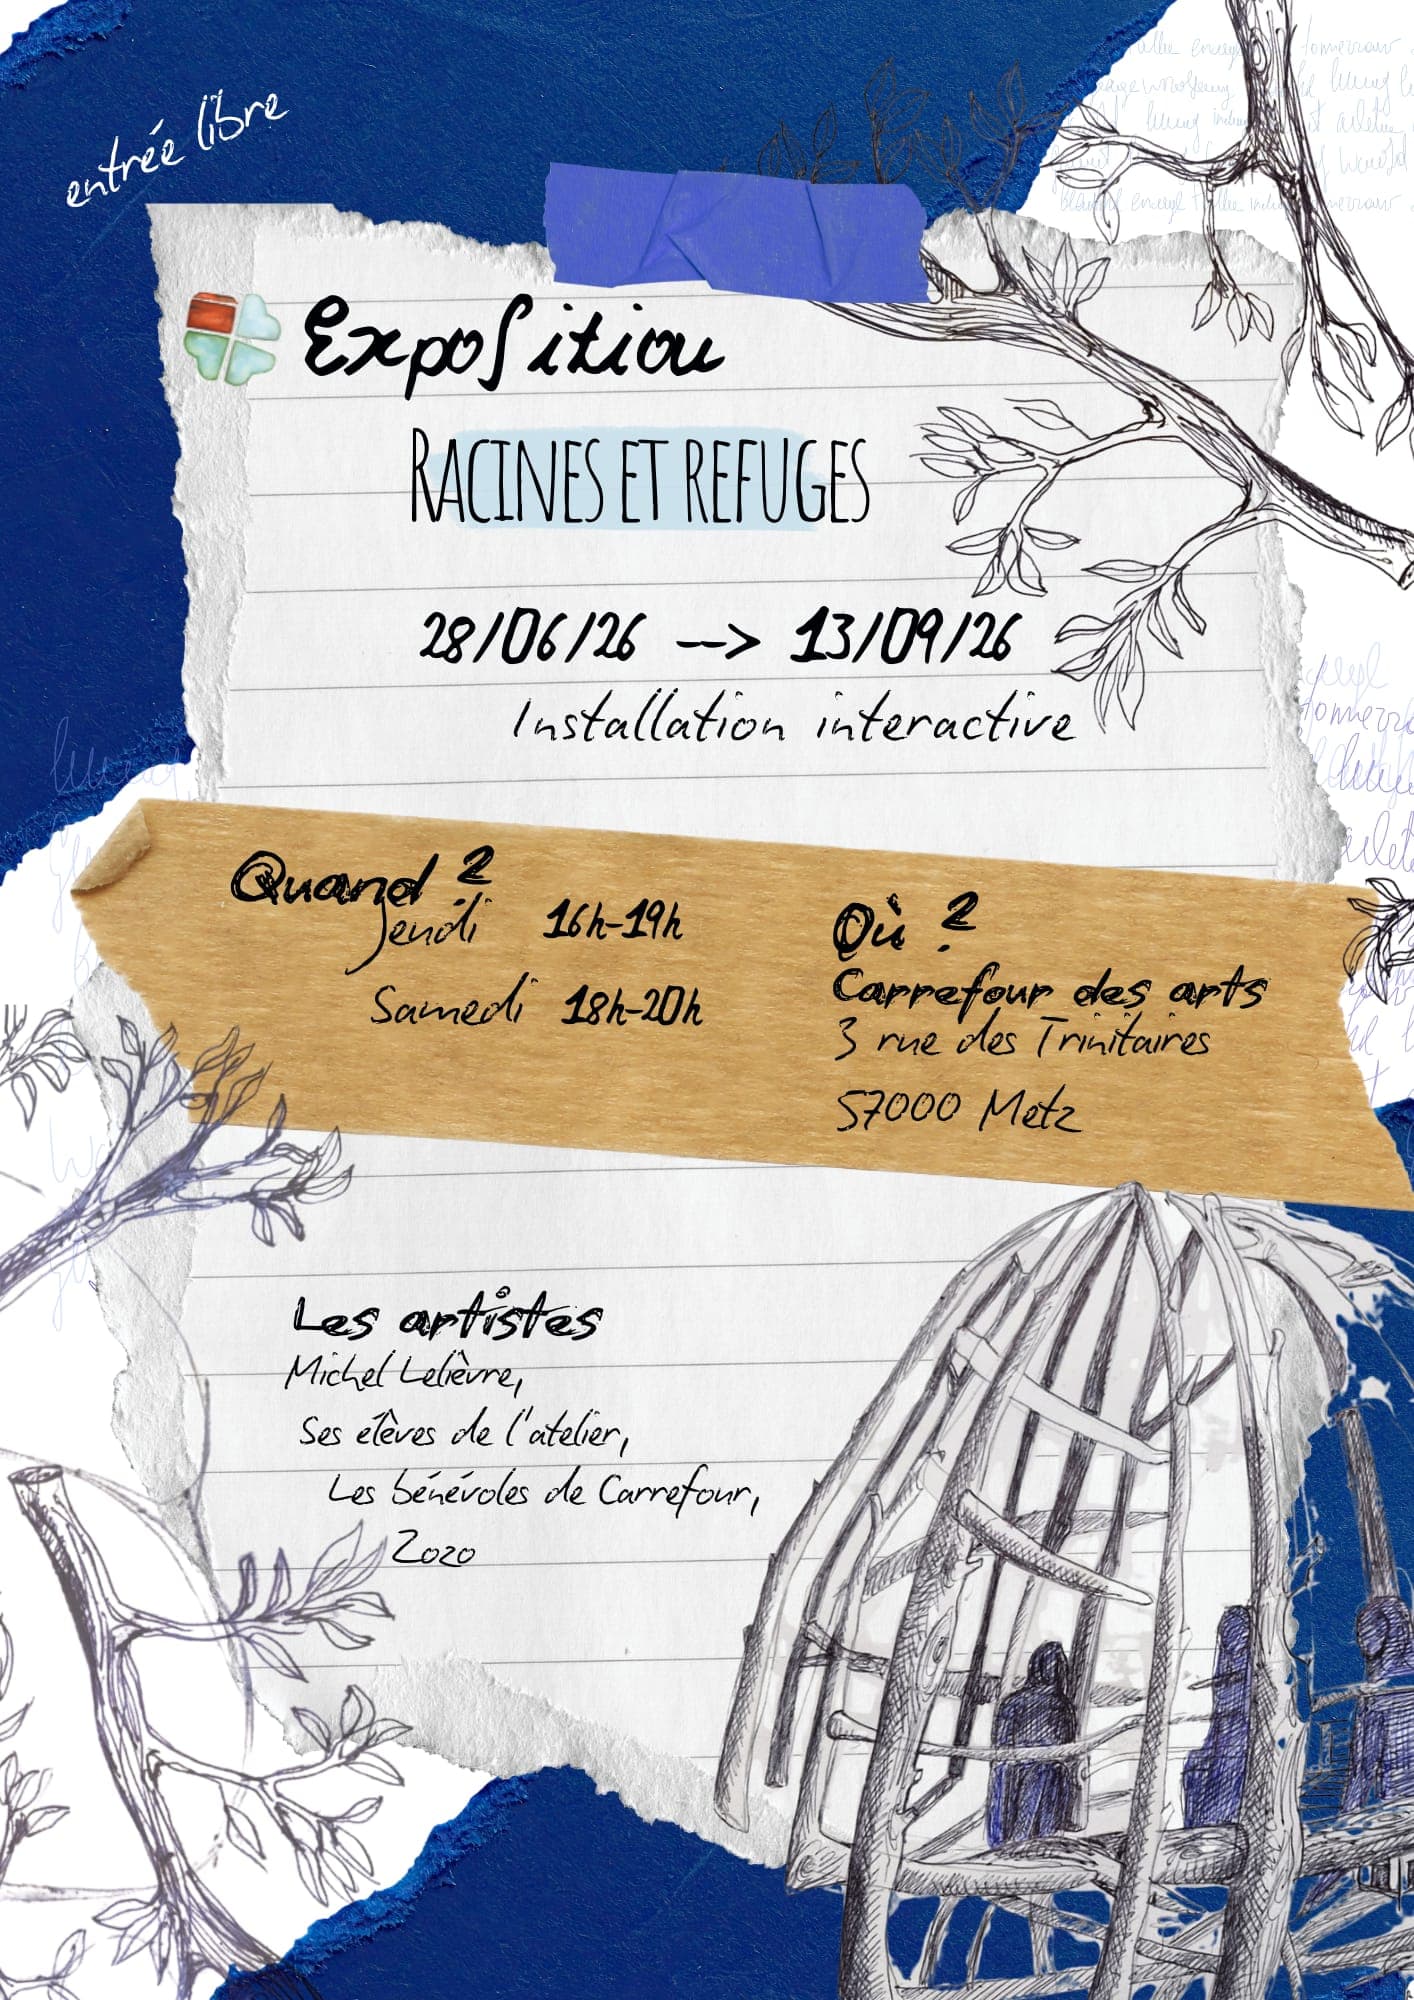 entrée libre
Exposition
RACINES ET REFUGES
28/06/26 --> 13/09/26
Installation interactive
Quand ?
Jeudi 16h-19h
Samedi 18h-20h
Où ?
Carrefour des arts
3 rue des Trinitaires
57000 Metz
Les artistes
Michel Lelièvre,
Ses élèves de l'atelier,
Les bénévoles de Carrefour,
Zozo